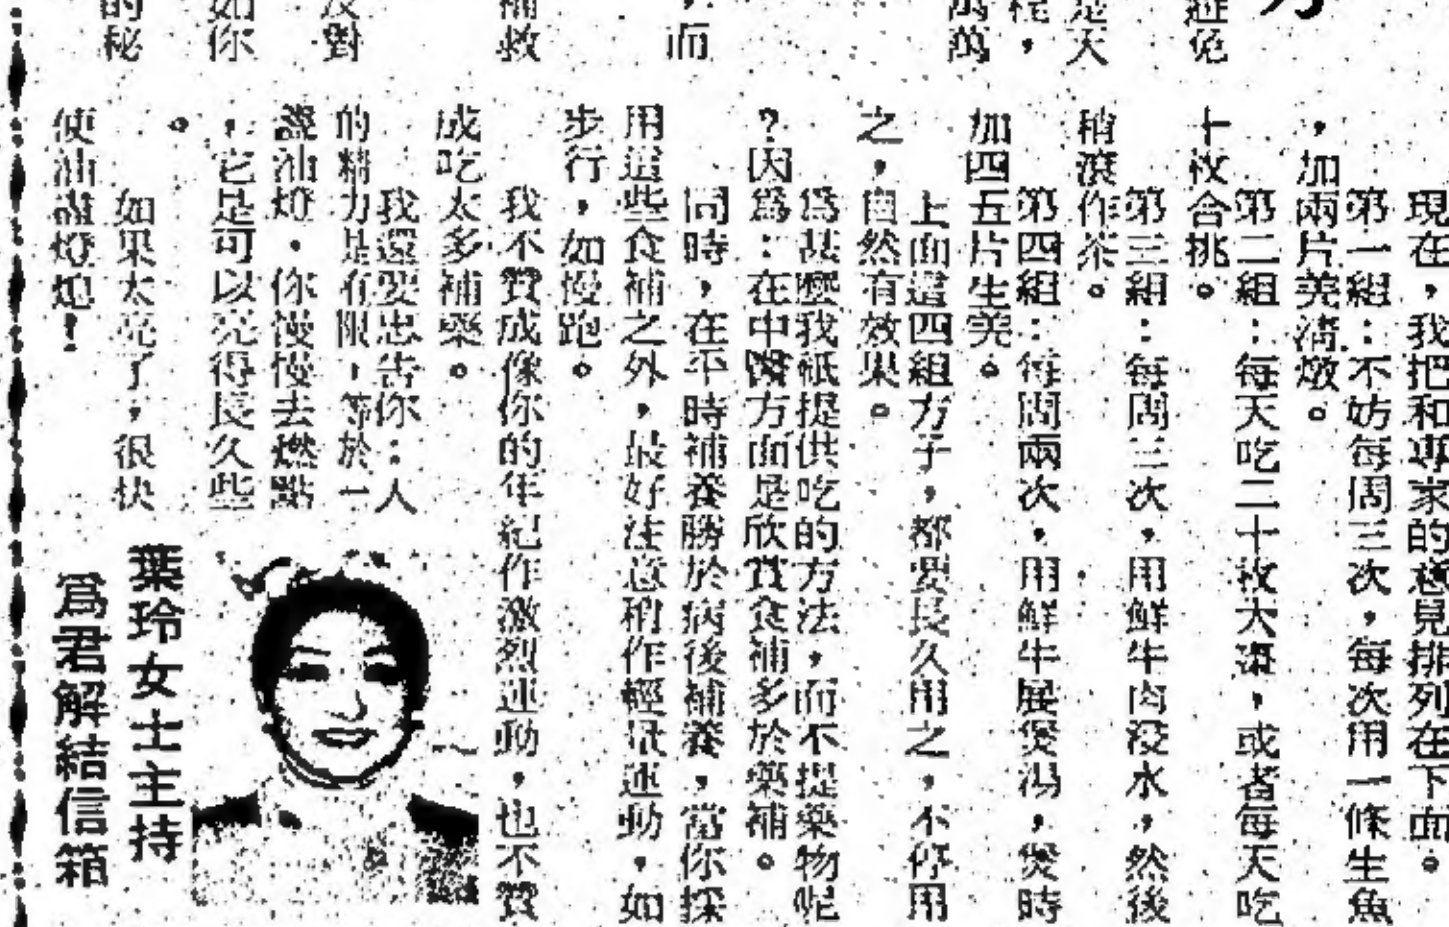 避免
是天
程，
萬萬
，而
補救
反對
如你
的秘
現在，我把和專家的意見排列在下面。
第一組：不妨每周三次，每次用一條生魚
，加兩片羌清燉。
第二組：每天吃二十枚大棗，或者每天吃
十枚合挑。
第三組：每周三次，用鮮牛肉浸水，然後
稍滾作茶。
第四組：每周兩次，用鮮牛展煲湯，煲時
加四五片生羌。
上面這四組方子，都要長久用之，不停用
之，自然有效果。
為甚麼我祇提供吃的方法，而不提藥物呢
？因為：在中醫方面是欣賞食補多於藥補。
同時，在平時補養勝於病後補養，當你採
用這些食補之外，最好注意稍作輕微運動，如
步行，如慢跑。
我不贊成像你的年紀作激烈運動，也不贊
成吃太多補藥。
我還要忠告你：人
的精力是有限，等於一
盞油燈。你慢慢去燃點
，它是可以亮得長久些
。
如果太亮了，很快
便油盡燈熄！
葉玲女士主持
為君解結信箱